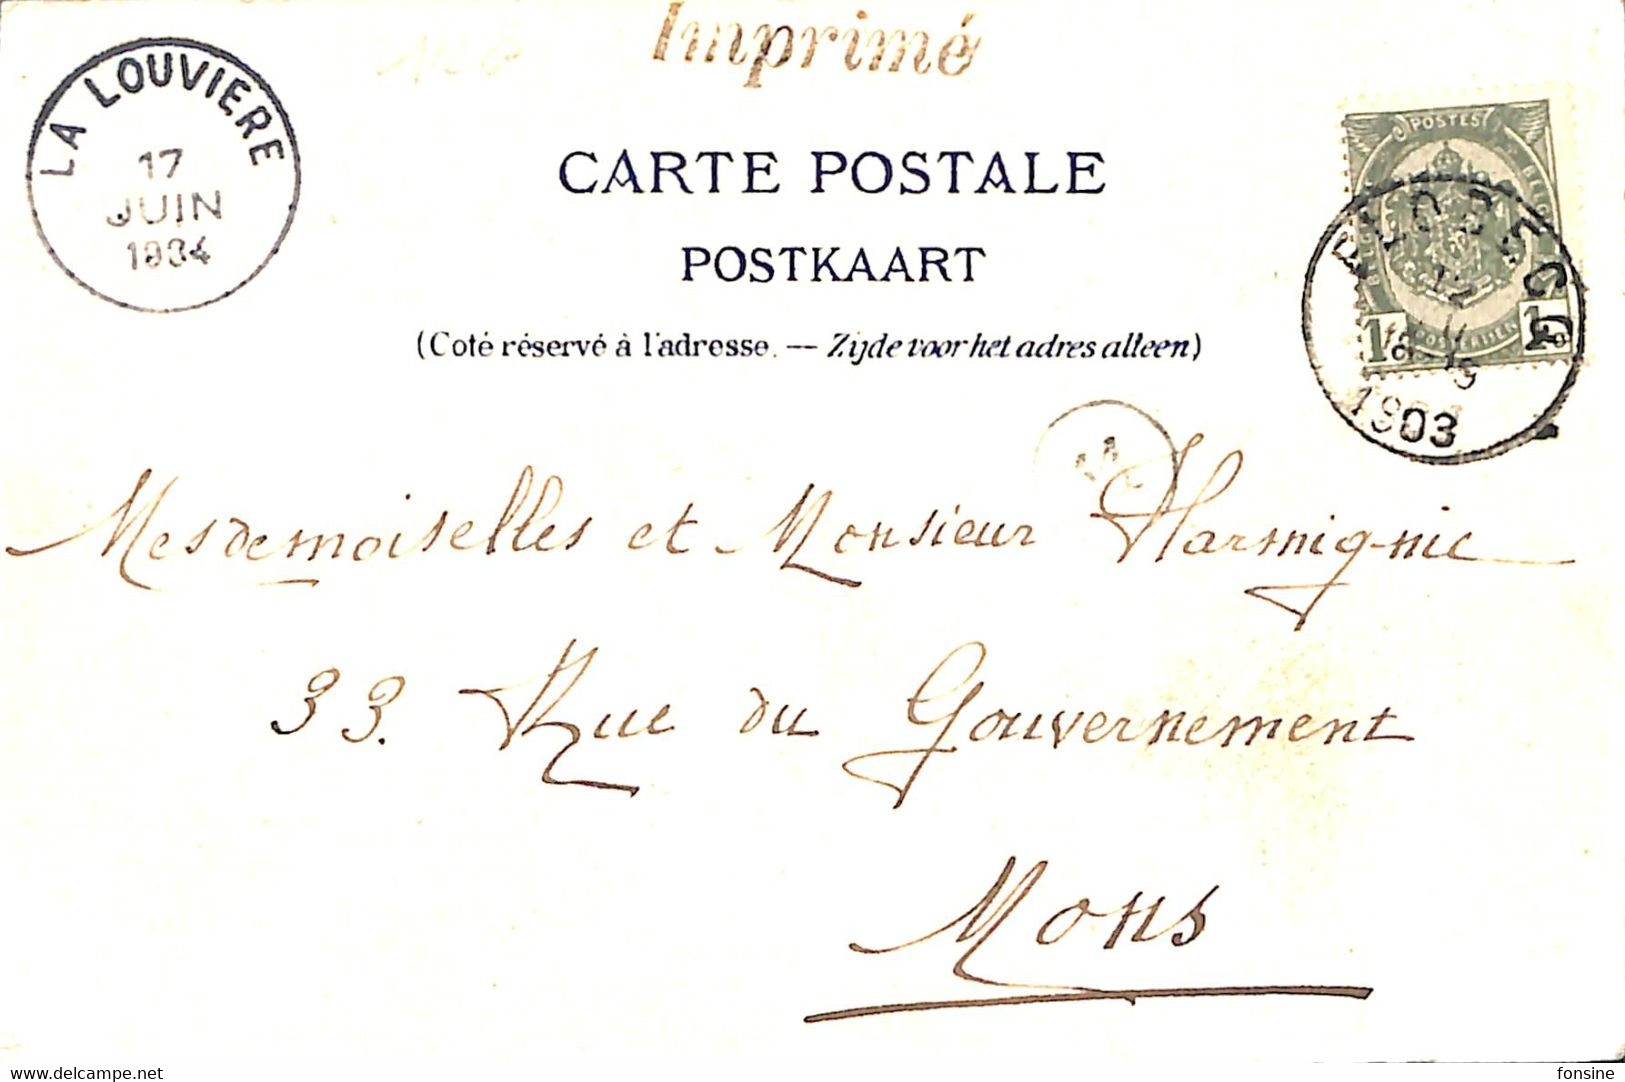 Imprimé
LA LOUVIERE
17
JUIN
1904
CARTE POSTALE
POSTKAART
(Coté réservé à l'adresse. — Zijde voor het adres alleen)
POSTES
1
1
1903
Mesdemoiselles et Monsieur Harmignie
33. Rue du Gouvernement
Mons
www.delcampe.net
fonsine